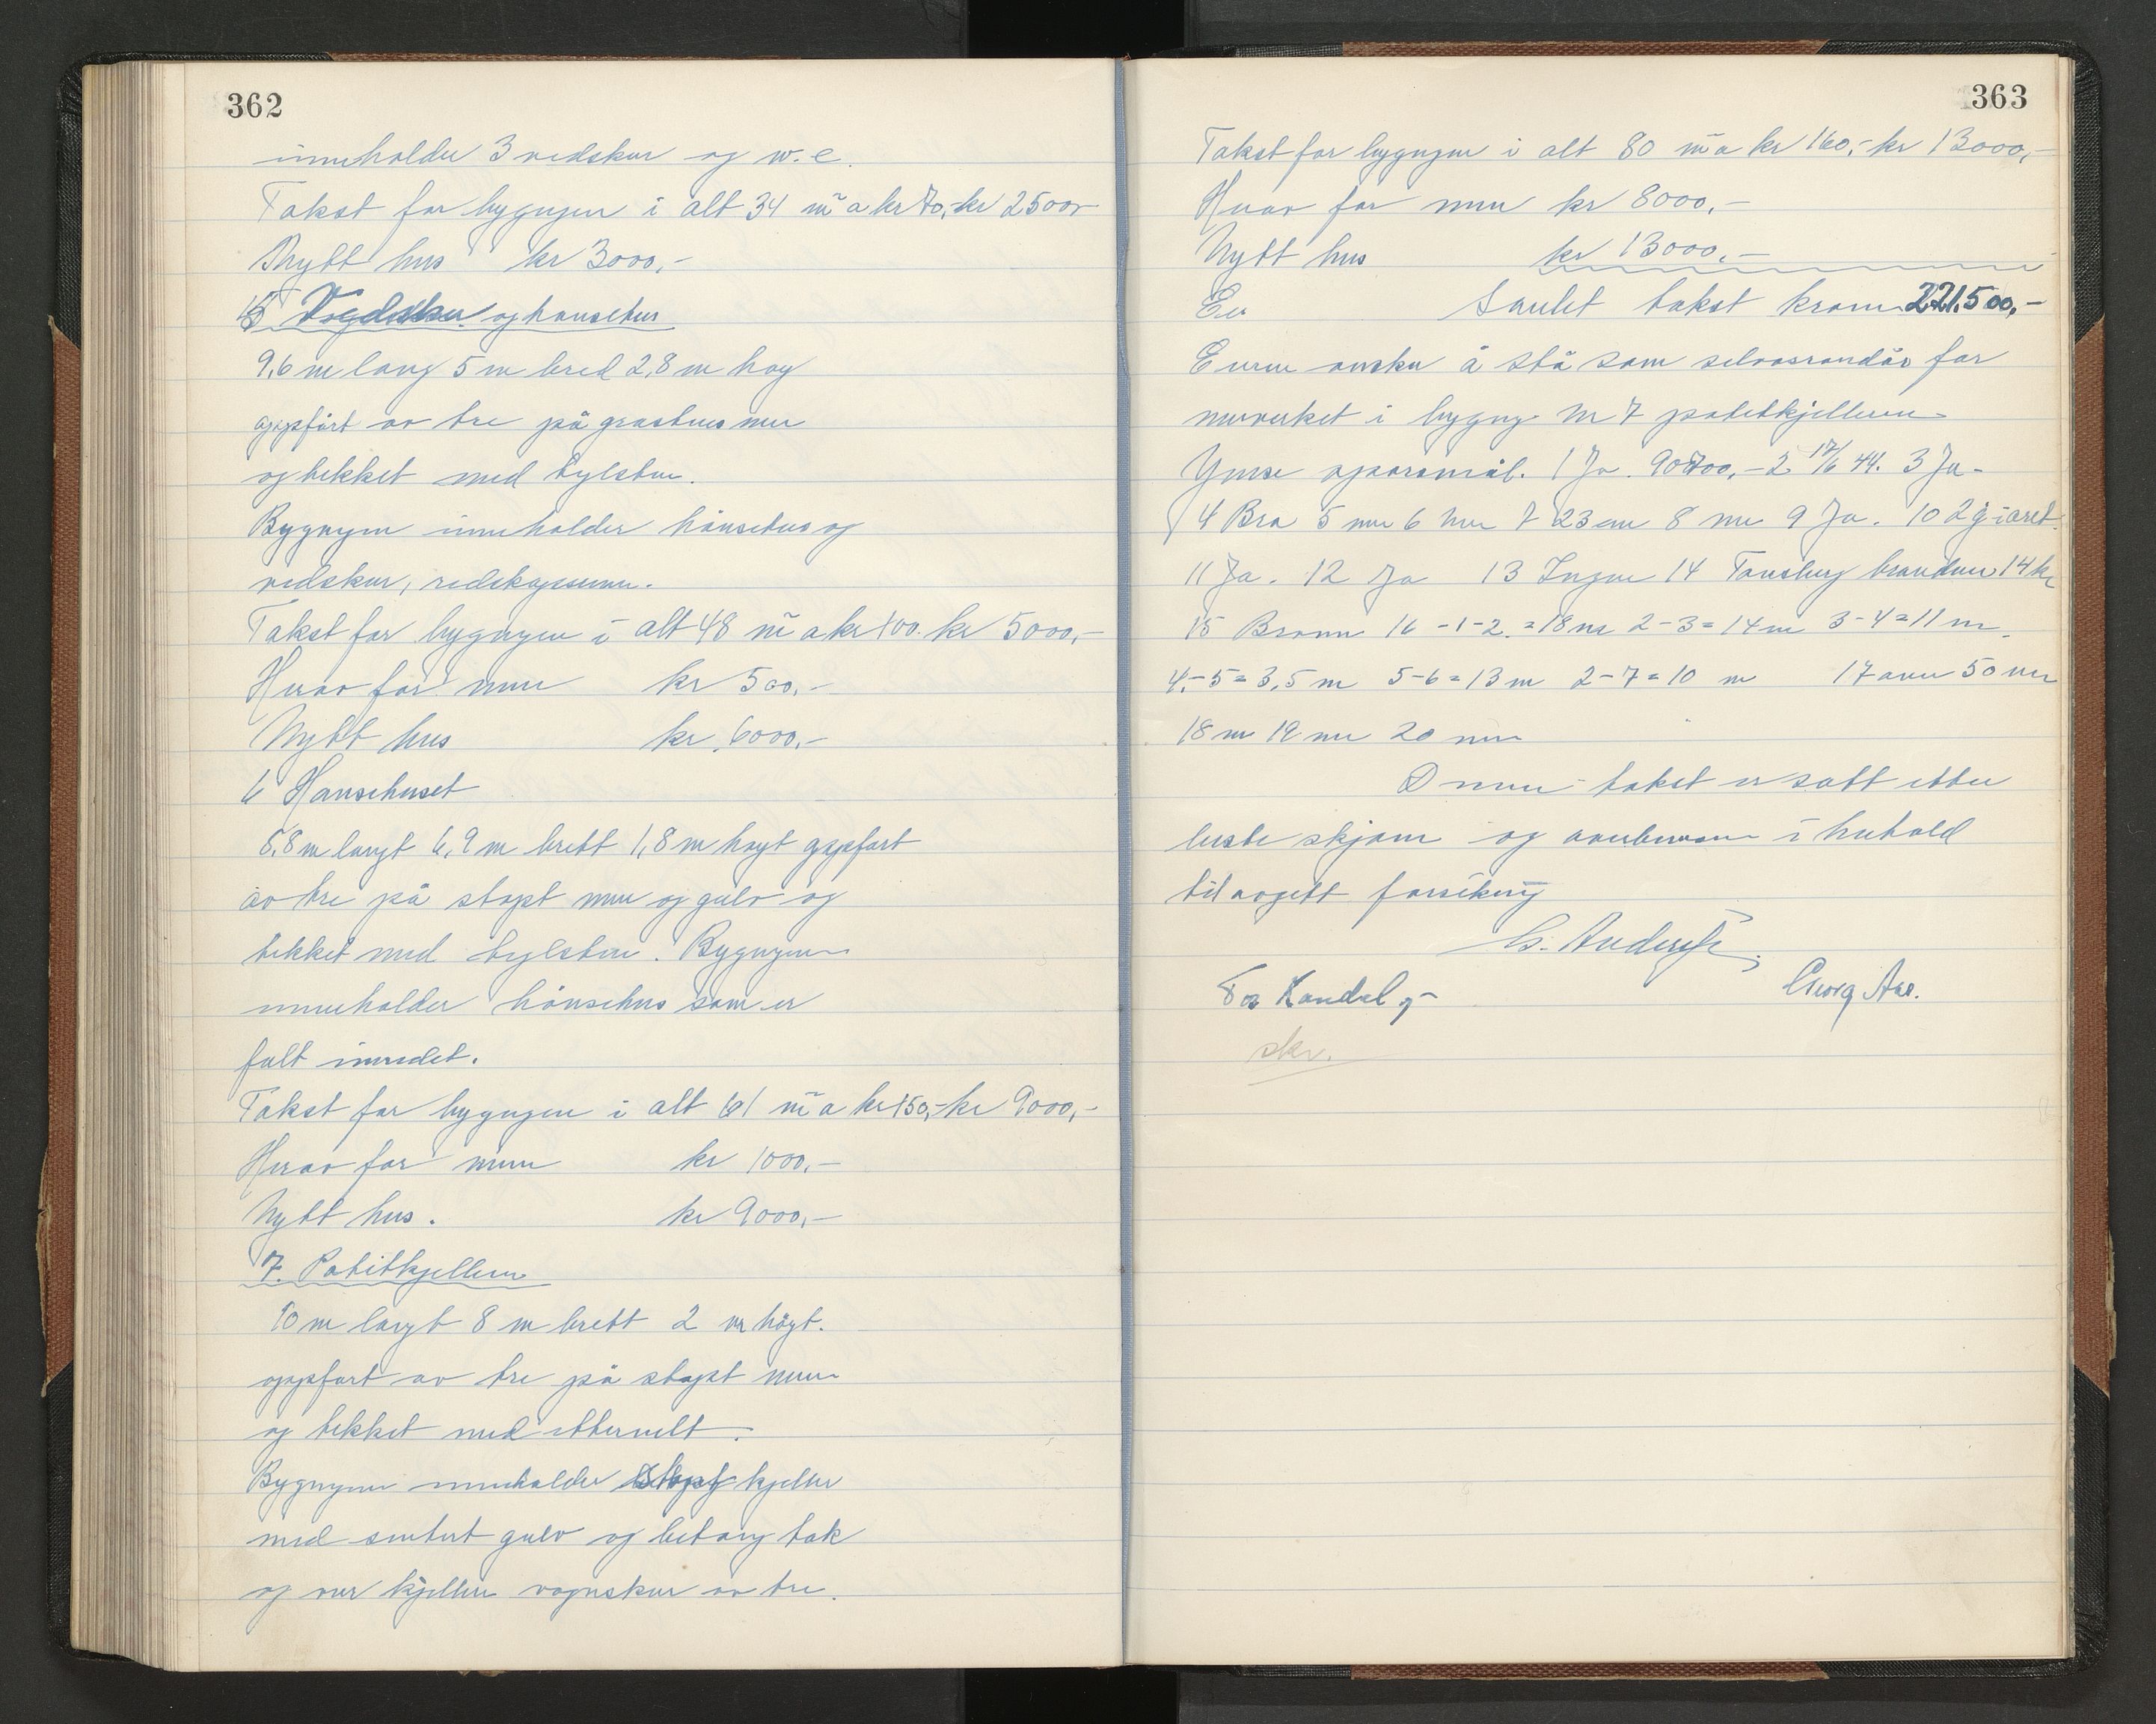 362
inneholder 3 vedskur og w.c.
Takst for bygngen i alt 34 m² a kr 70,- kr 2500,-
Nytt hus kr 3000,-
5 og hønsehus
9,6 m lang 5 m bred 2,8 m høg
oppført av tre på gråstens mur
og tekket med tylsten.
Bygngen inneholder hönsehus og
vedskur, redskapsrum.
Takst for bygngen i alt 48 m² a kr 100. kr 5000,-
Herav for mur kr 500,-
Nytt hus kr 6000,-
6 Hønsehuset
8,8 m langt 6,9 m brett 1,8 m høgt oppført
av tre på støpt mur og gulv og
tekket med tylsten. Bygngen
inneholder hönsehus som er
fult innredet.
Takst for bygngen i alt 61 m² a kr 150,- kr 9000,-
Herav for mur kr 1000,-
Nytt hus. kr 9000,-
7. Potetkjelleren
10 m langt 8 m brett 2 m högt.
oppført av tre på støpt mur
og tekket med etternelt.
Bygngen inneholder støpt kjeller
med sentert gulv og betong tak
og over kjelleren vognskur av tre.
363
Takst for bygngen i alt 80 m² a kr 160,- kr 13000,-
Herav for mur kr 8000,-
Nytt hus kr 13000,-
Samlet takst kroner 221.500,-
Eieren ønsker å stå som selvassurandør for
murverket i bygng nr 7 potetkjelleren
Ymse spørsmål. 1 Ja. 90700,- 2 17/6 44. 3 Ja.
4 Bra 5 nei 6 nei 7 23 cm 8 nei 9 Ja. 10 2 g i året.
11 Ja. 12 Ja 13 Ingen 14 Tønsberg brandver 14 km
15 Brønn 16 - 1-2 = 18 m 2-3 = 14 m 3-4 = 11 m.
4-5 = 3,5 m 5-6 = 13 m 2-7 = 10 m 17 over 50 m
18 nei 19 nei 20 nei
Denne takst er satt etter
beste skjønn og overbevisn i henhold
til avgitt forsikring
Georg Aas.
skr.